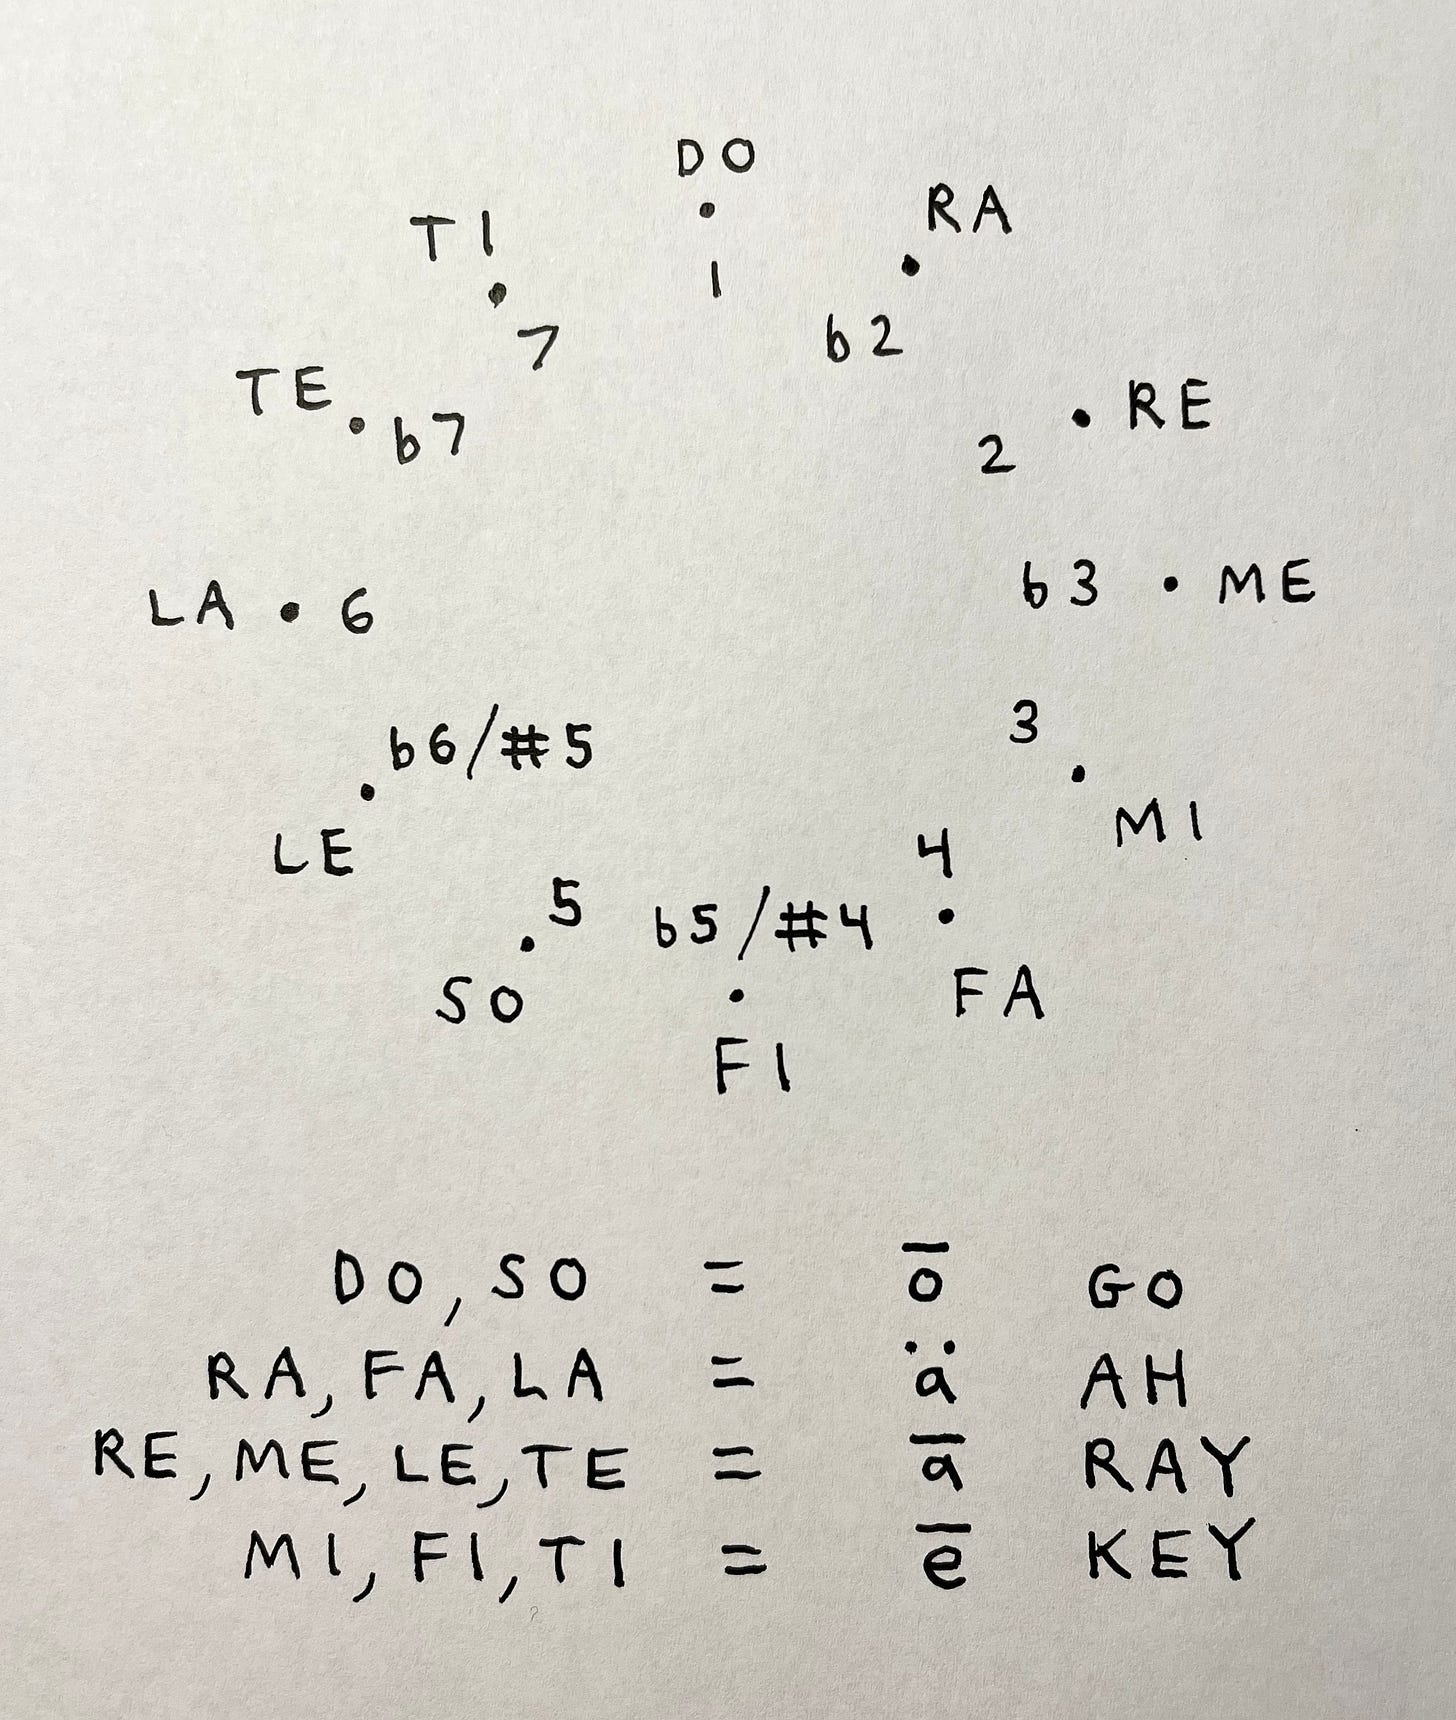 DO
TI
RA
1
7
b2
TE
b7
RE
2
b3
ME
LA
6
3
b6/#5
MI
LE
4
5
b5/#4
SO
FA
FI
DO, SO = ō GO
RA, FA, LA = ä AH
RE, ME, LE, TE = ā RAY
MI, FI, TI = ē KEY